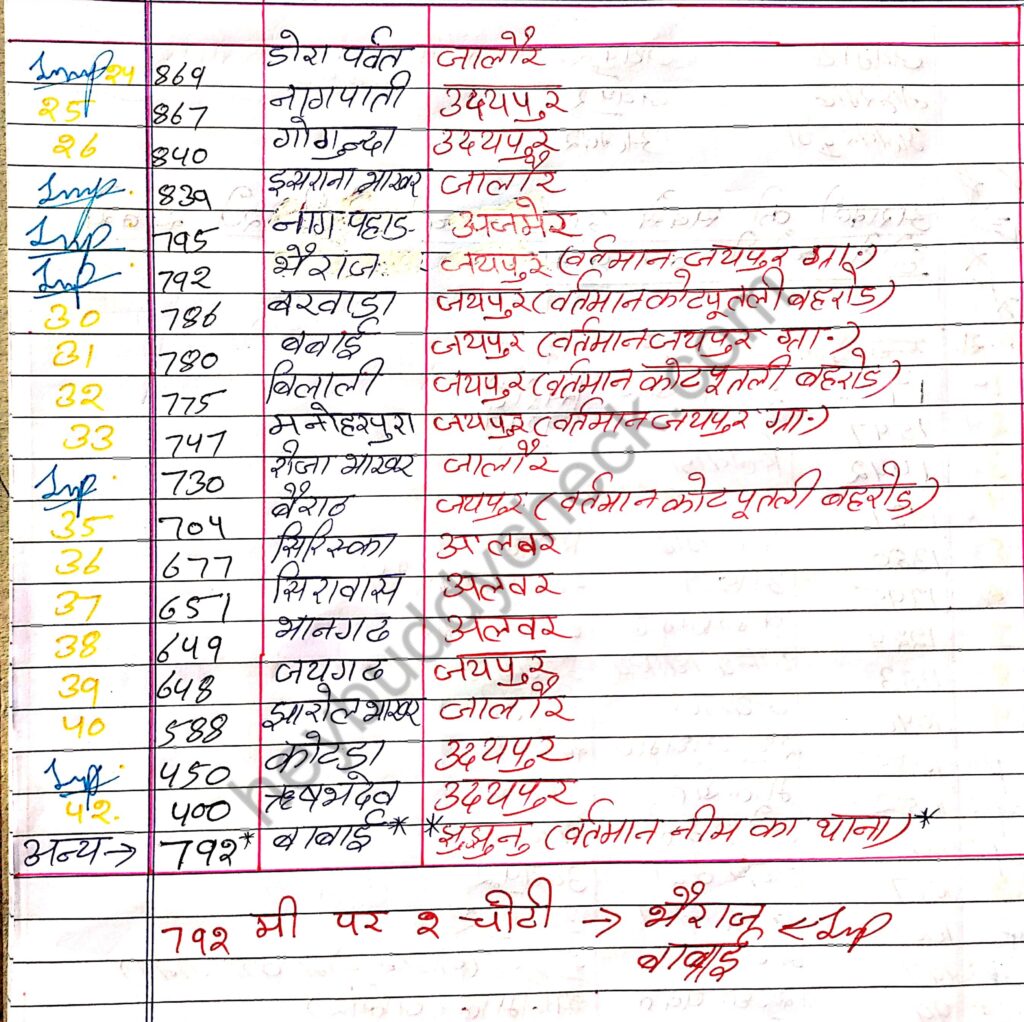 Imp 24 869 डोरा पर्वत जालौर
25 867 नागपाती उदयपुर
26 840 गोगुन्दा उदयपुर
Imp. 839 इसराना भाखर जालौर
Imp 795 नाग पहाड अजमेर
Imp 792 भैराज जयपुर (वर्तमान जयपुर ग्रा.)
30 786 बरवाड़ा जयपुर (वर्तमान कोटपूतली बहरोड)
31 780 बबाई जयपुर (वर्तमान जयपुर ग्रा.)
32 775 बिलाली जयपुर (वर्तमान कोटपूतली बहरोड)
33 747 मनोहरपुरा जयपुर (वर्तमान जयपुर ग्रा.)
Imp 730 रोजा भाखर जालौर
35 704 बैराठ जयपुर (वर्तमान कोटपूतली बहरोड)
36 677 सिरिस्का अलवर
37 651 सिरावास अलवर
38 649 भानगढ अलवर
39 648 जयगढ जयपुर
40 588 झारोल भाखर जालौर
Imp. 450 कोटडा उदयपुर
42. 400 ऋषभदेव उदयपुर
अन्य → 792* बाबाई* *झुझुनु (वर्तमान नीम का थाना)*
792 मी पर 2 चोटी → भैराज < Imp
बाबाई
heybuddycheck.com